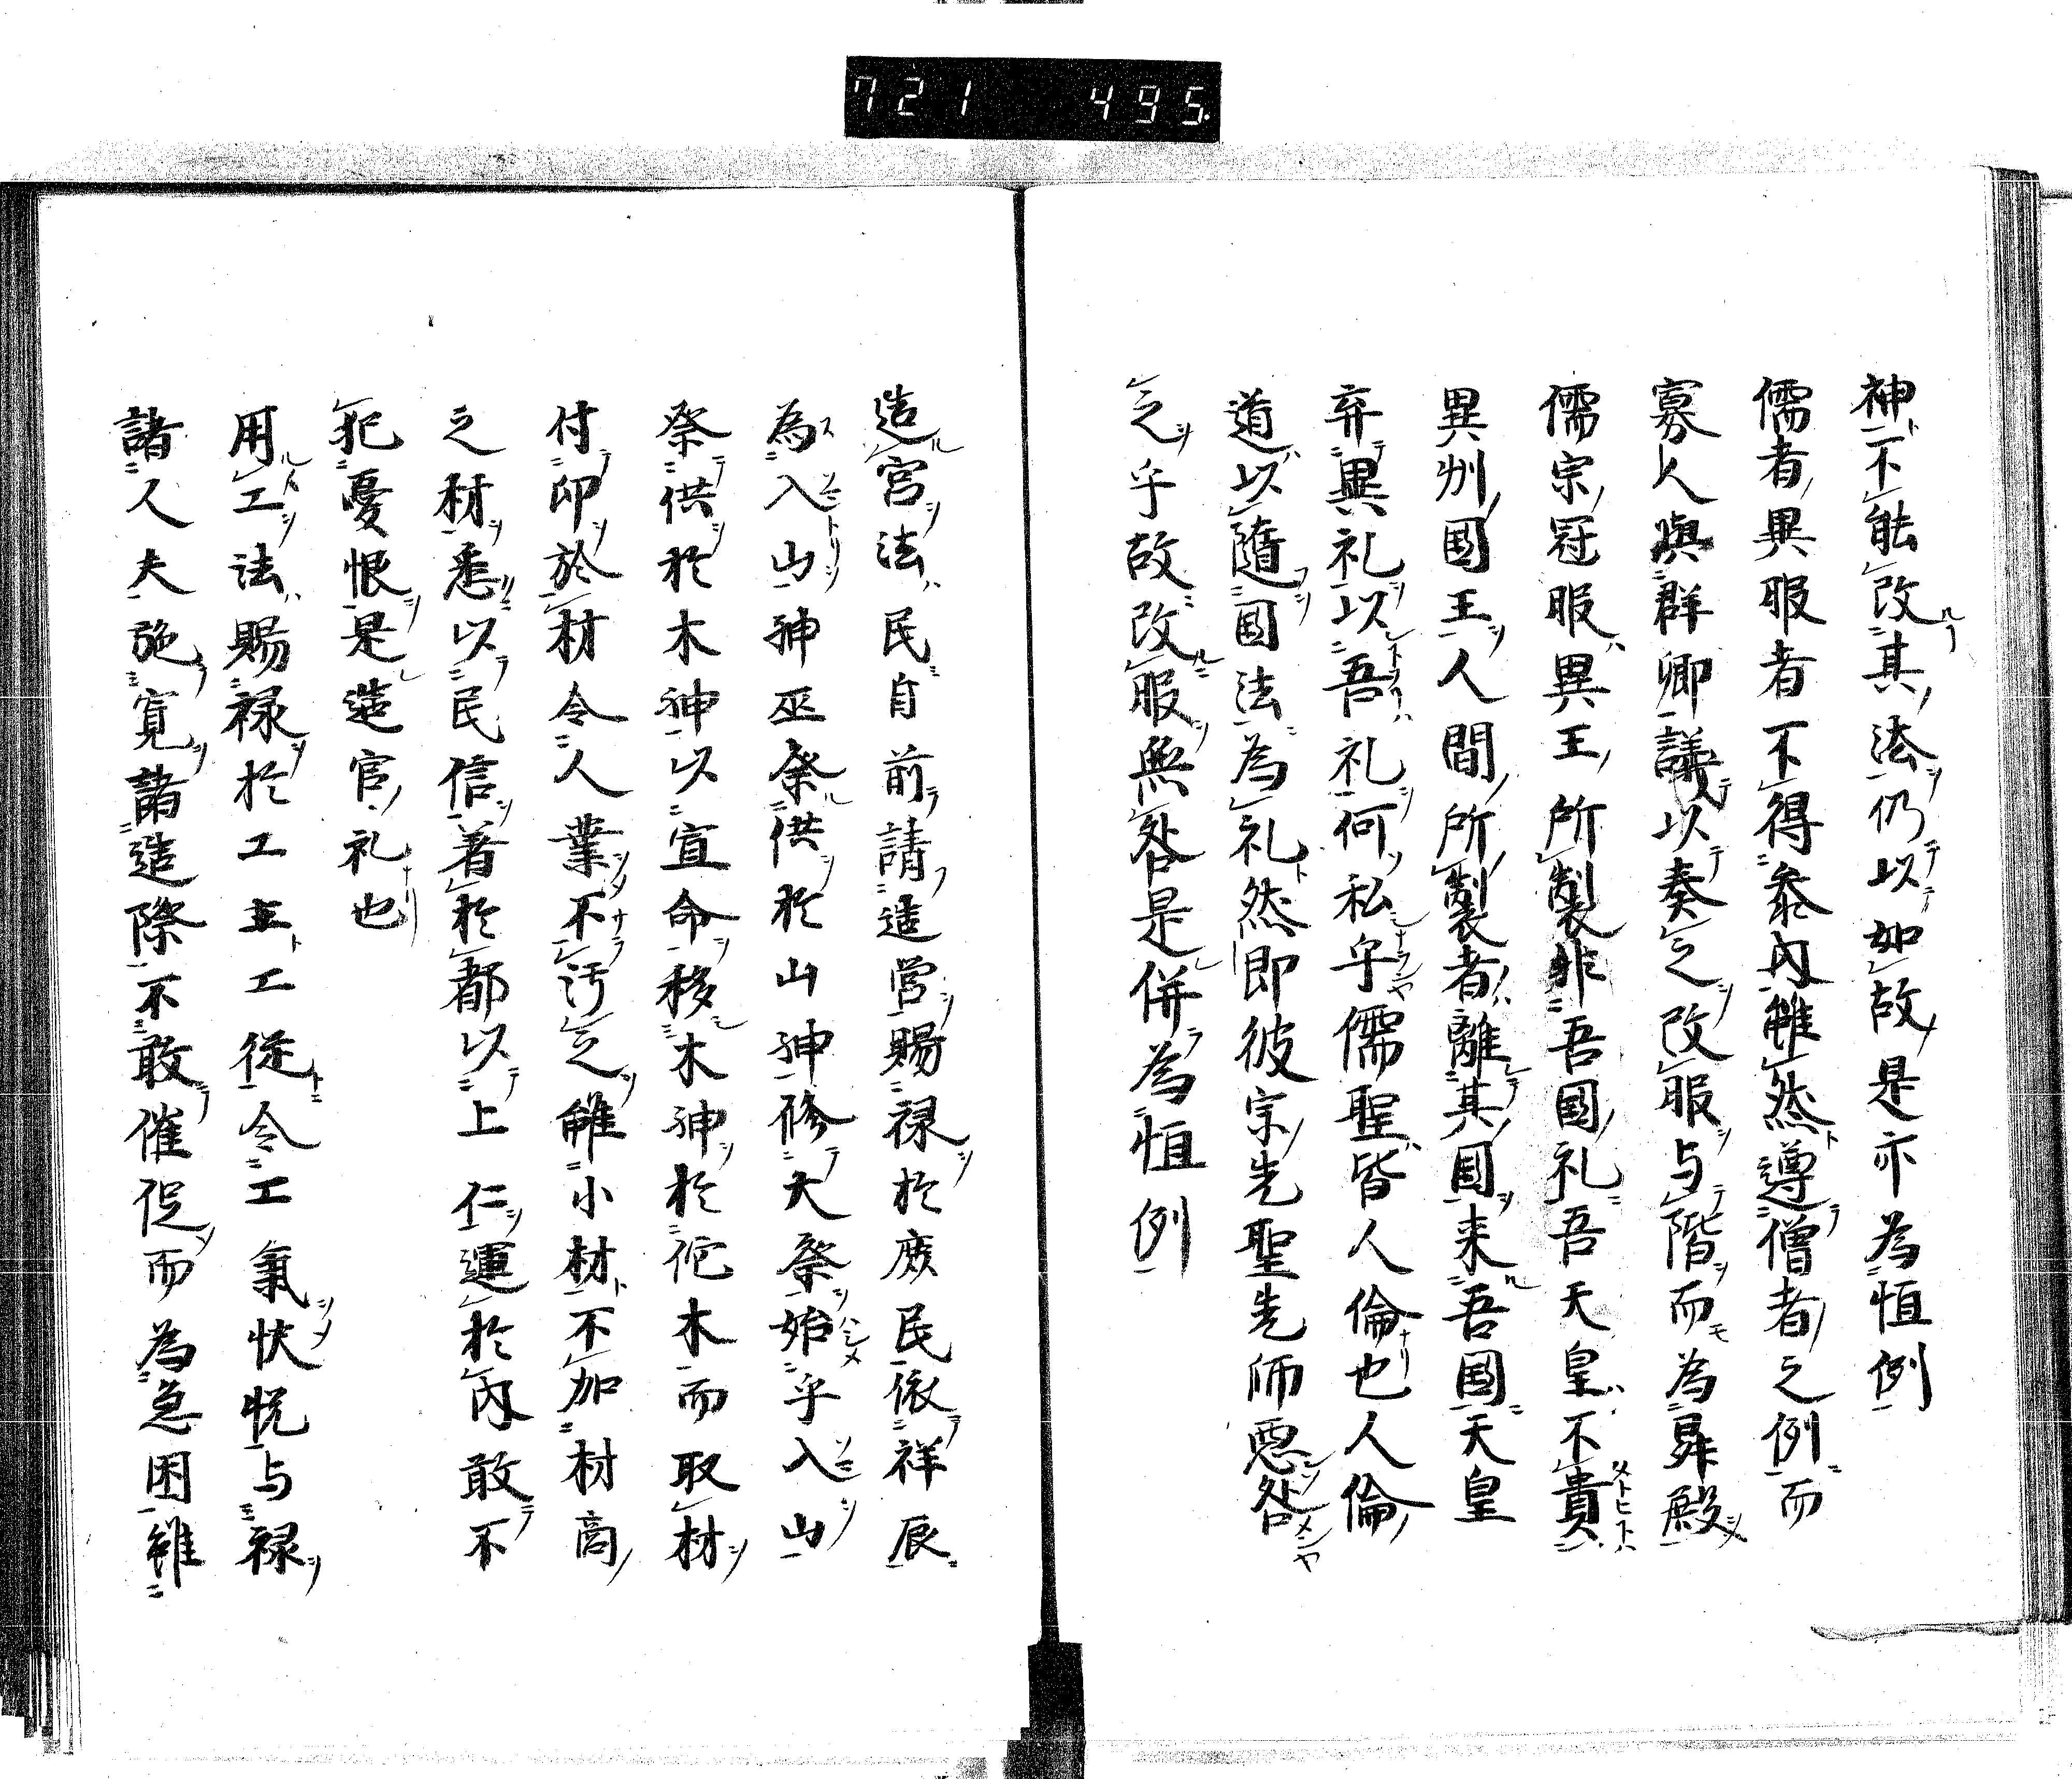 721 495
神不能改其法仍以如故是亦為恒例
儒者異服者不得参内雖然遵僧者之例而
寡人與群卿議以奏之改服与階而為昇殿
儒宗冠服異王所製非吾國礼吾天皇不貴
異州國王人間所製者離其國来吾國天皇
弃異礼以吾礼何私乎儒聖皆人倫也人倫
道以隨國法為礼然即彼宗先聖先師悪咎
之乎故改服無咎是併為恒例
造宮法民自前請造営賜禄於庶民依祥辰
為入山神巫祭供於山神修大祭始乎入山
祭供於木神以宣命移木神於佗木而取材
付印於材令人業不汚之雖小材不加材商
之材悉以民信着於都以上仁運於内敢不
犯憂恨是造官礼也
用工法賜禄於工主工従令工氣快悦与禄
諸人夫施寛諸造際不敢催促而為急困雖